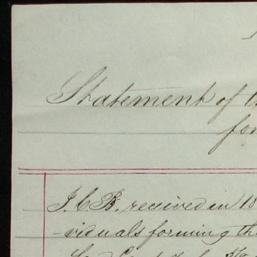 Statement of
for
J. C. B. received in 18
-viduals forming th